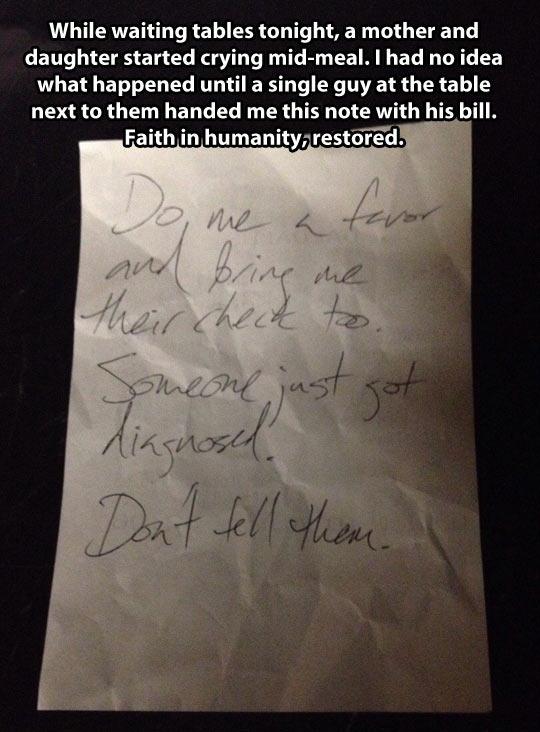 While waiting tables tonight, a mother and
daughter started crying mid-meal. I had no idea
what happened until a single guy at the table
next to them handed me this note with his bill.
Faith in humanity, restored.
Do me a favor
and bring me
their check too.
Someone just got
diagnosed.
Don't tell them.